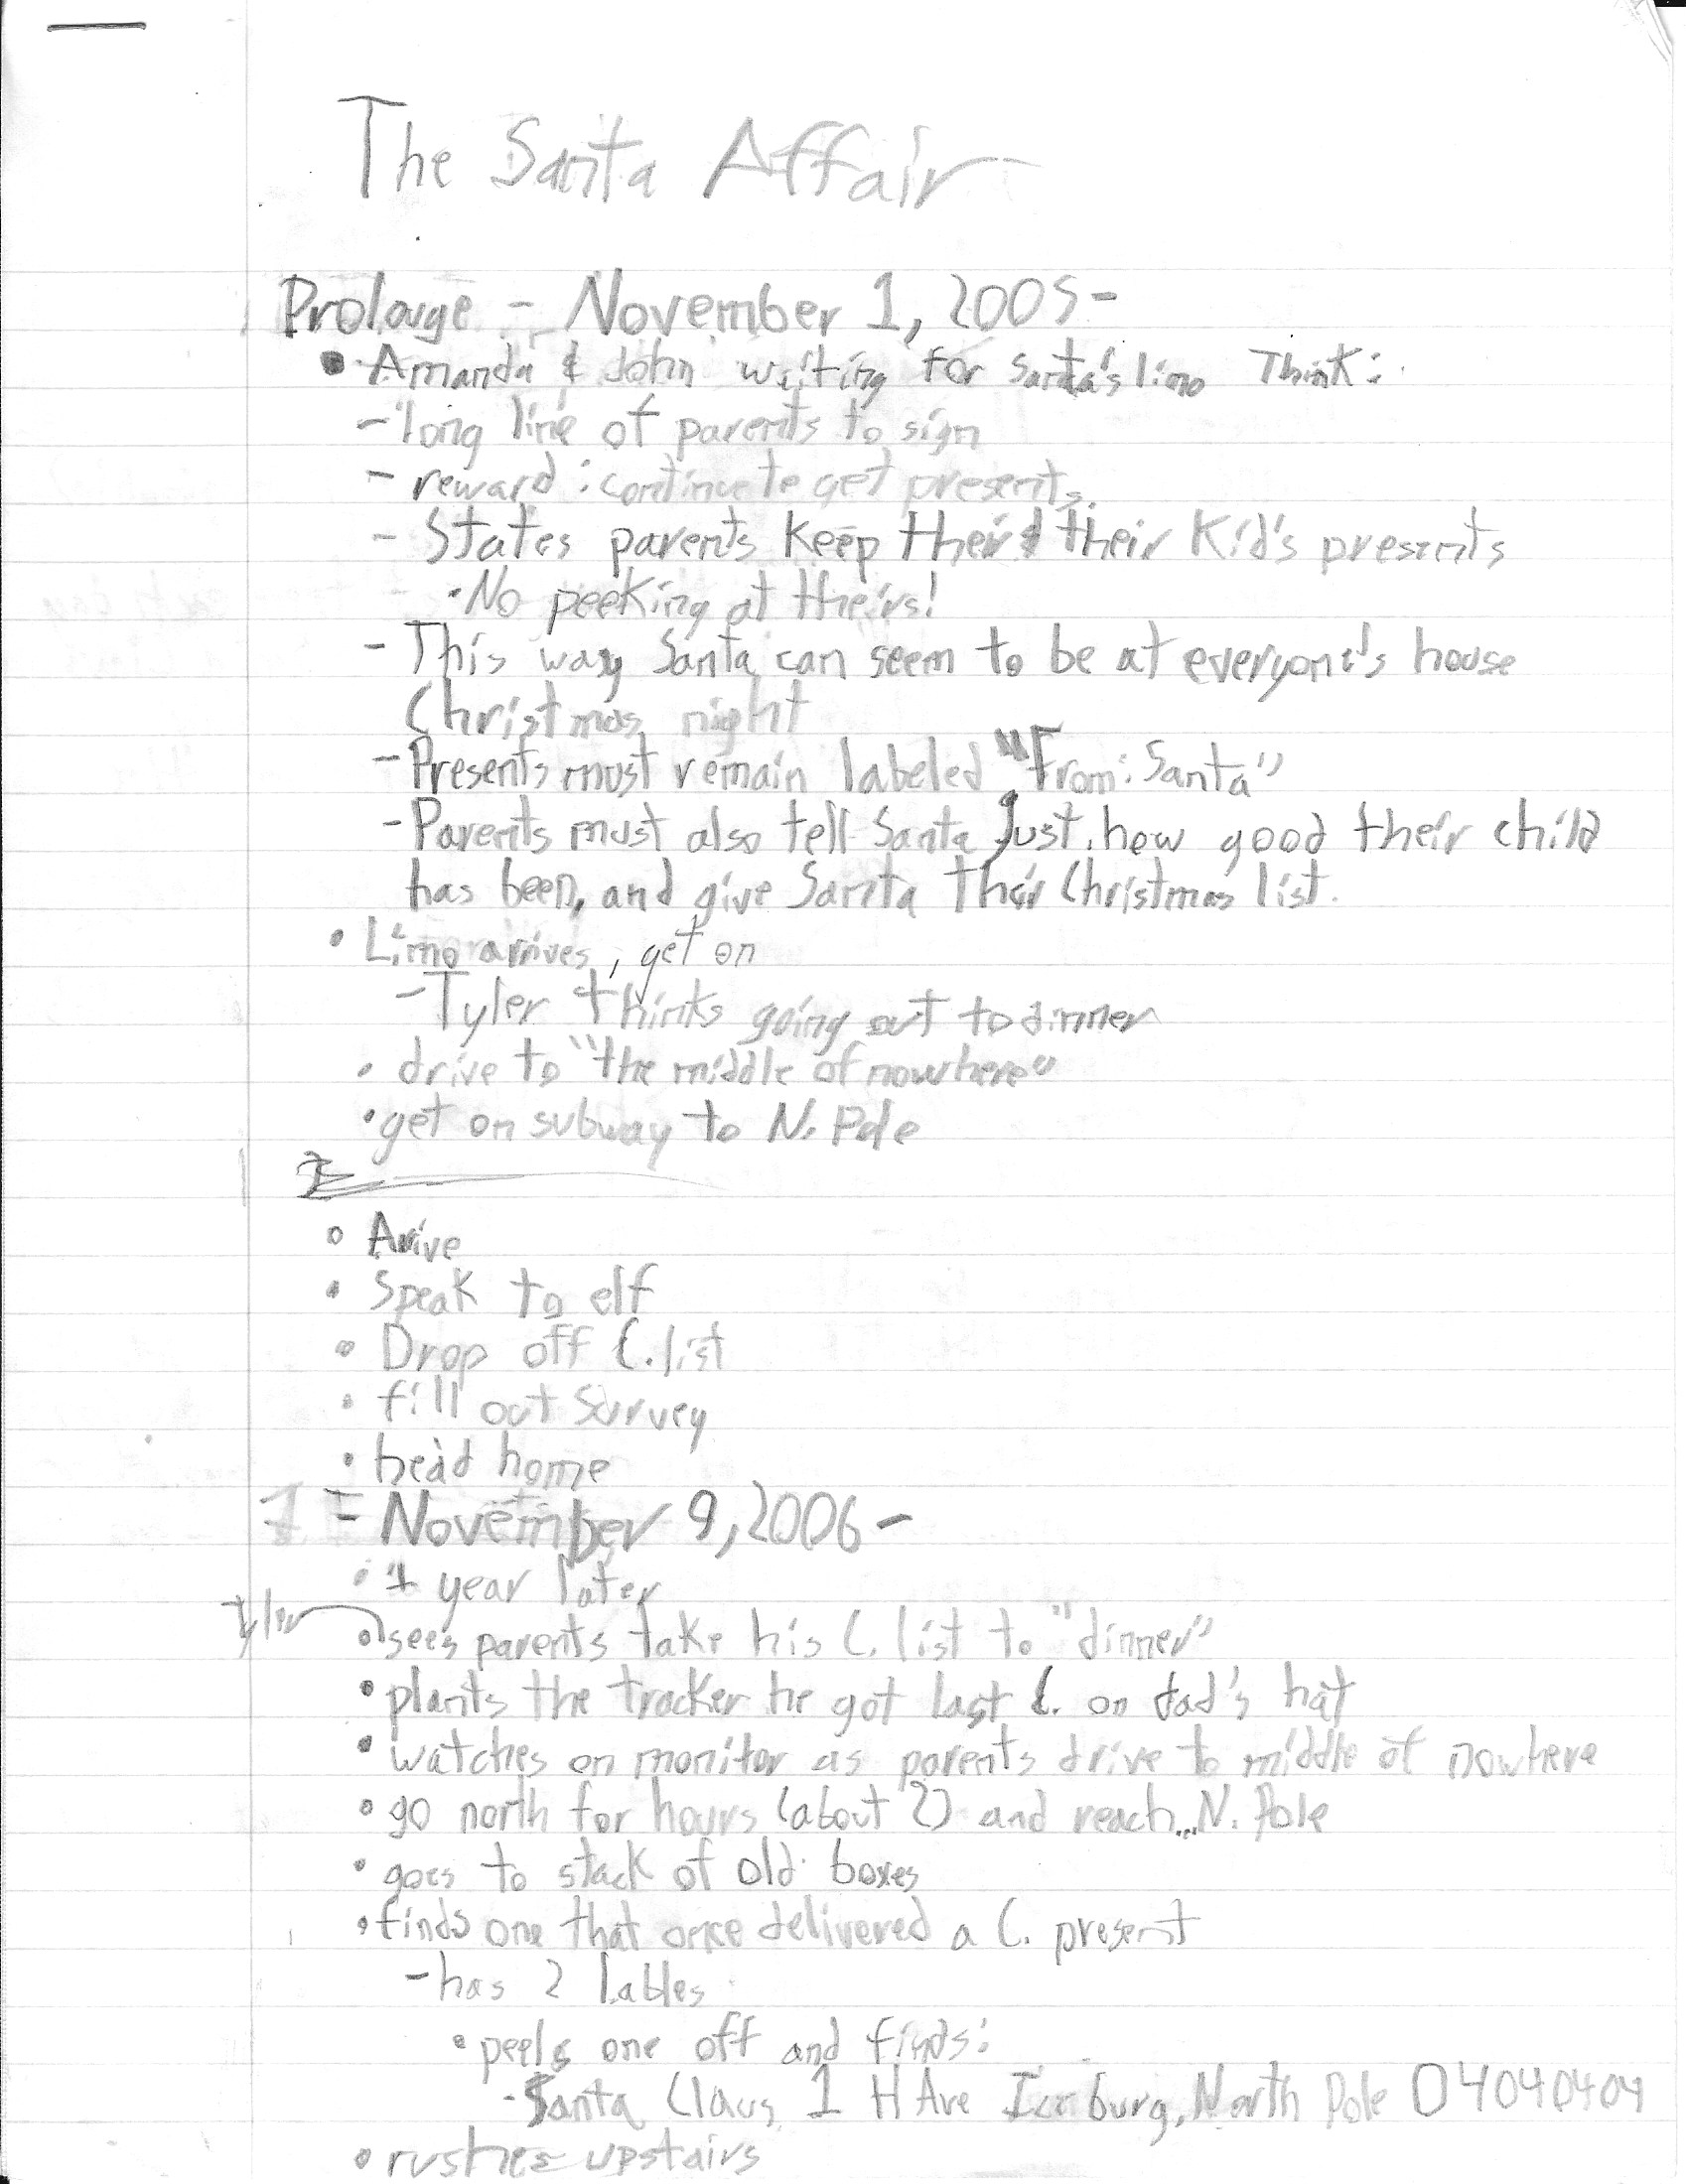 The Santa Affair
Prolouge - November 1, 2005-
• Amanda & John waiting for Santa's limo Think:
- long line of parents to sign
- reward: continue to get presents.
- States parents keep their & their Kid's presents
• No peeking at theirs!
- This way Santa can seem to be at everyone's house
Christmas night
- Presents must remain labeled "From: Santa"
- Parents must also tell Santa Just how good their child
has been, and give Santa their Christmas list.
• Limo arrives, get on
- Tyler thinks going out to dinner
• drive to "the middle of nowhere"
• get on subway to N. Pole
• Arive
• Speak to elf
• Drop off C. list
• fill out survey
• head home
1 - November 9, 2006 -
• 1 year later
Tyler
• sees parents take his C. list to "dinner"
• plants the tracker he got last C. on dad's hat
• watches on monitor as parents drive to middle of nowhere
• go north for hours (about 2) and reach...N. Pole
• goes to stack of old boxes
• finds one that once delivered a C. present
- has 2 lables
• peels one off and finds:
- Santa Claus, 1 H Ave Iceburg, North Pole 04040404
• rushes upstairs